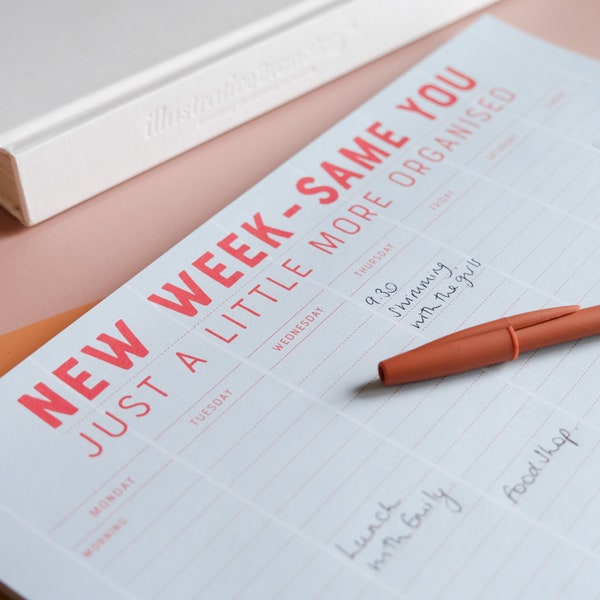 illustrative branding
NEW WEEK - SAME YOU
JUST A LITTLE MORE ORGANISED
MONDAY
TUESDAY
WEDNESDAY
THURSDAY
FRIDAY
SATURDAY
SUNDAY
MORNING
9.30
swimming
with the girls
Lunch
with Emily
Food Shop.